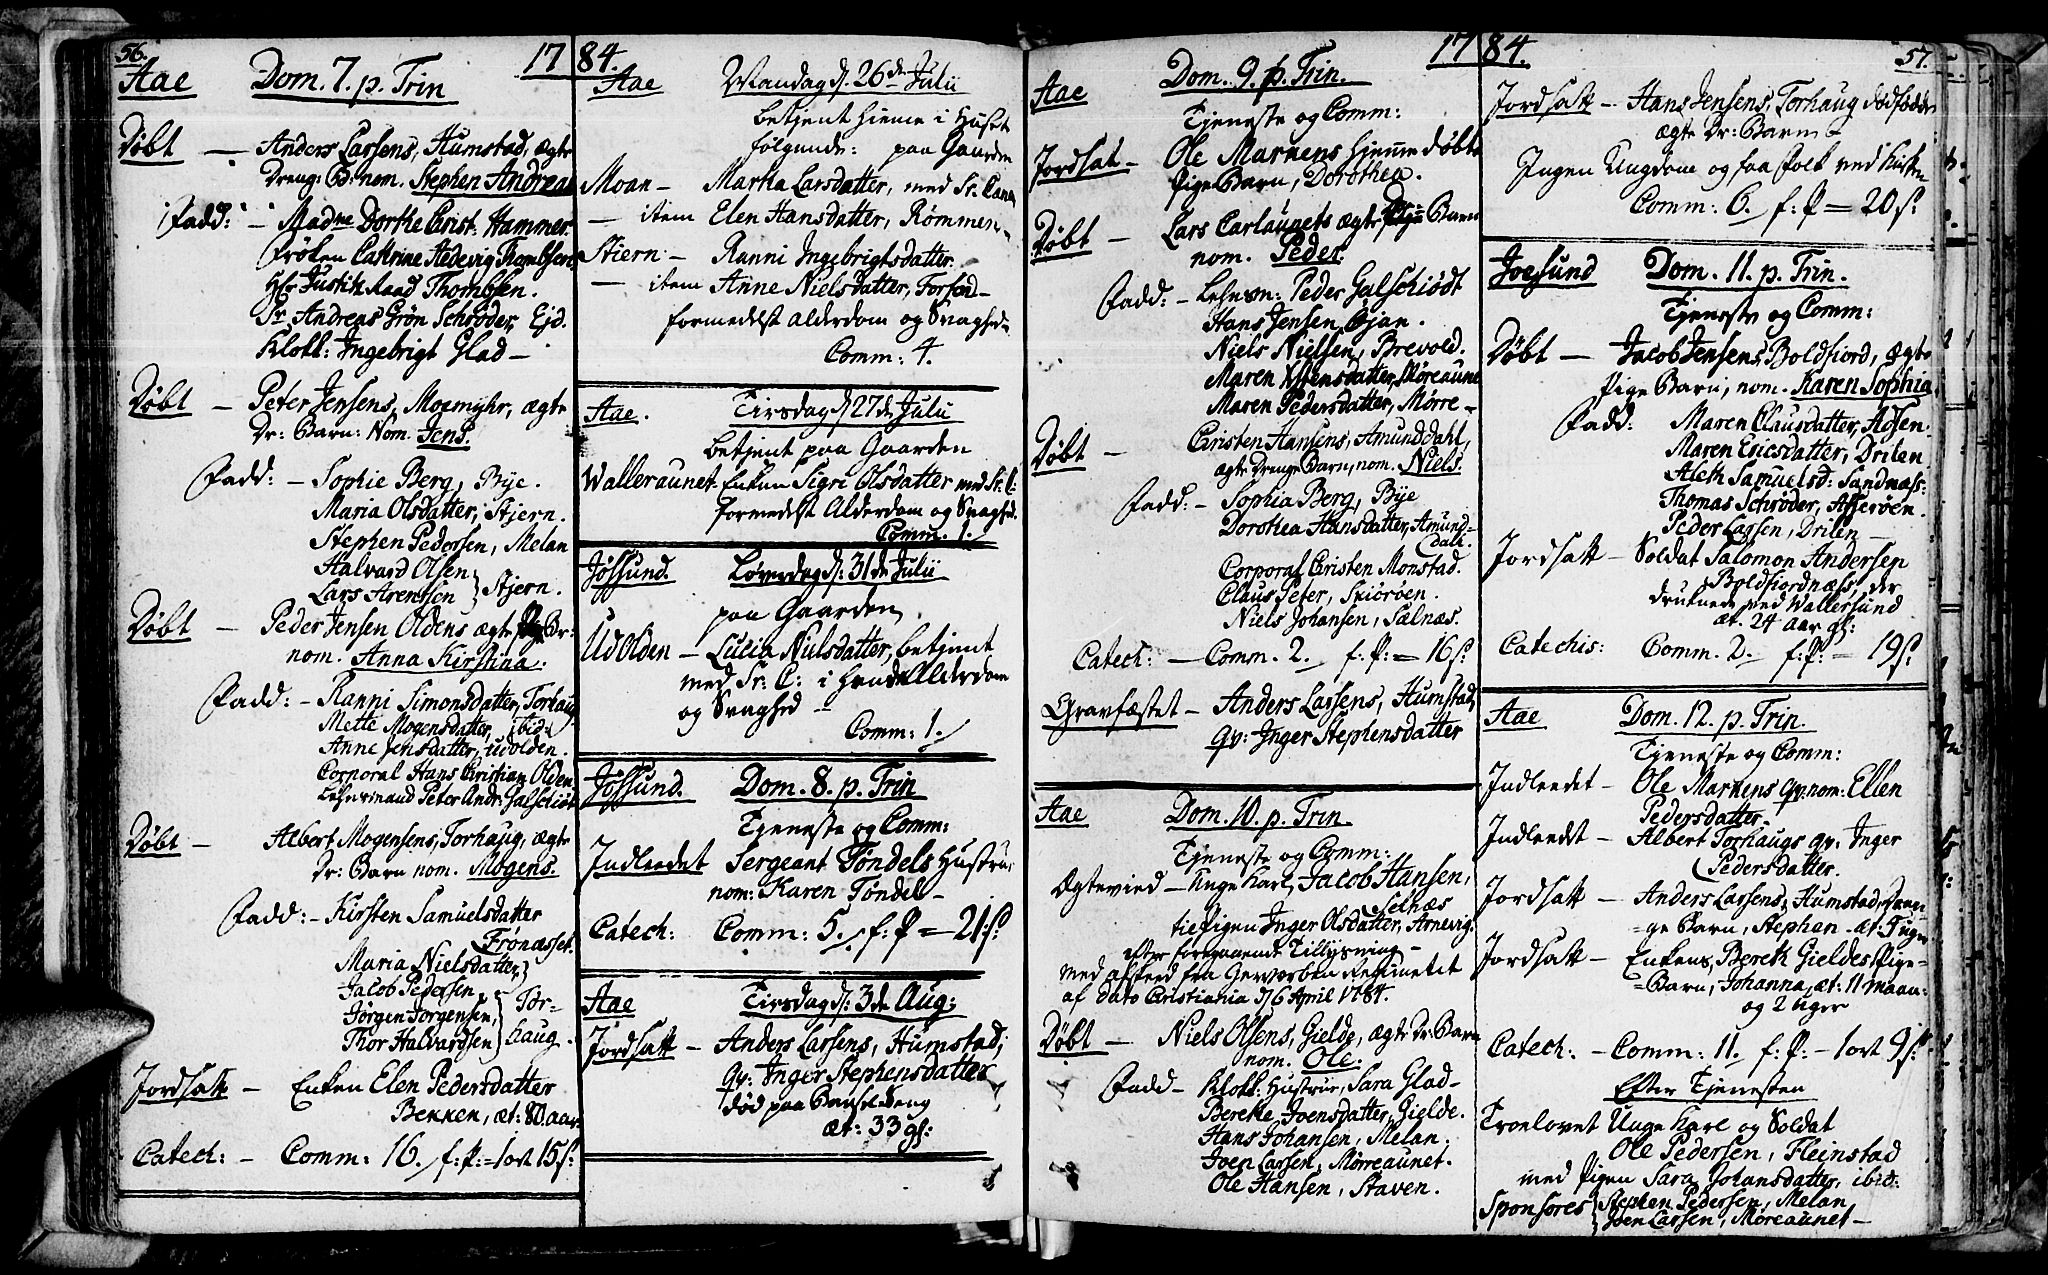 56.
1784.
Aae Dom. 7. p. Trin
Døbt — Anders Larsens, Humstad, ægte
Dreng: B: nom. Stephen Andreas
Fadd: — Madme Dorthe Christ. Hammer.
Frøken Cathrine Hedevig Thombsen,
Hr Justitz Raad Thombsen.
Sr Andreas Grøn Schrøder, Ejd.
Klokk: Ingebrigt Glad —
Døbt — Peter Jensens, Moemyhr, ægte
Dr: Barn: Nom. Jens.
Fadd: — Sophie Berg, Bye.
Maria Olsdatter, Stjern.
Stephen Pedersen, Melan
Halvard Olsen
Lars Arentsen } Stjern.
Døbt — Peder Jensen Oldens ægte Br:
nom. Anna Kirstina.
Fadd: — Ranni Simonsdatter, Torhaug
Mette Mogensdatter, ibid:
Anne Jensdatter, udolden.
Corporal Hans Christian Olden
Lehnsmand Peter Andr: Galschiøt
Døbt — Albert Mogensens, Torhaug, ægte
Dr: Barn nom. Mogens.
Fadd: — Kirsten Samuelsdatter
Frønæsset.
Maria Nielsdatter,
Jacob Pedersen
Jørgen Jørgensen,
Thor Halvardsen } Torhaug.
Jordsatt — Enken Elen Pedersdatter
Bekken, æt: 80 aar
Catech: — Comm: 16. f: P: = 1 ort 15 s:
Aae Mandag d. 26de Julii
betjent hieme i Huset
følgende: paa Gaarden
Moan — Martha Larsdatter, med Sr. Cana
— item Elen Hansdatter, Rømmen
Stiern — Ranni Ingebrigtsdatter
— item Anne Nielsdatter, Forsød —
formedelst alderdom og Svaghed
Comm: 4.
Aae. Tirsdag d. 27de Julii
betjent paa Gaarden
Walleraunet. Enken Sigri Olsdatter med Sr. C:
formedelst Alderdom og Svaghed.
Comm. 1.
Jøssund. Løverdag d: 31de Julii
paa Gaarden
Udolden — Lucia Nielsdatter, betjent
med Sr: C: i hendes Alderdom
og Svaghed —
Comm: 1.
Jøssund. Dom. 8. p. Trin
Tjeneste og Comm:
Indleedet Sergeant Tøndels Hustrue
nom: Karen Tøndel —
Catech: Comm: 5. f: P = 21 s:
Aae Tirsdag d: 3de Aug:
Jordsatt — Anders Larsens, Humstad,
qv: Inger Stephensdatter
død paa Barselseng
æt: 33 gl:
57.
1784.
Aae Dom. 9. p. Trin.
Tjeneste og Comm:
Jordsat — Ole Markens hjemme døbte
Pige Barn, Dorothea.
Døbt — Lars Carlaunets ægte Barn
nom. Peder.
Fadd: — Lehnsm: Peder Galschiødt
Hans Jensen Opjan.
Niels Nielsen, Brevold.
Maren Mortensdatter, Møreaunet
Maren Pedersdatter, Mørre —
Døbt — Christen Hansens, Amunddahl,
ægte Drenge Barn, nom. Niels.
Fadd: — Sophia Berg, Bye
Dorothea Hansdatter, Amund-
dahl.
Corporal Christen Monstad.
Claus Peter, Skiørøen.
Niels Johansen, Sælnæs.
Catech: — Comm. 2. f: P: = 16 s:
Gravfæstet — Anders Larsens, Humstad,
qv: Inger Stephensdatter
Aae Dom. 10. p. Trin.
Tjeneste og Comm:
Ægtevied — Unge Karl, Jacob Hansen,
Selnæs
til Pigen Inger Olsdatter, Arnevig.
efter foregaaende Tillysning —
med afskeed fra Regimentet
af dato Christiania d/6 April 1784.
Døbt — Niels Olsens, Gielde, ægte Dr: Barn
nom. Ole.
Fadd — Klokk: Hustrue, Sara Glad —
Berethe Joensdatter, Gielde.
Hans Johansen, Melan.
Joen Larsen, Mørreaunet.
Ole Hansen, Staven.
Jordsatt — Hans Jensens, Torhaug dødfødde
ægte Dr: Barn —
Ingen Ungdom og faa Folk ved Kirken
Comm: 6. f: P = 20 s:
Joesund Dom. 11. p. Trin.
Tjeneste og Comm:
Døbt — Jacob Jensens Boldfiord, ægte
Pige Barn, nom. Karen Sophia
Fadd: Maren Clausdatter, Aasen.
Maren Ericsdatter, Drilen
Aleth Samuelsd: Sandnæss:
Thomas Schrøder, Asserøen.
Peder Larsen, Drilen —
Jordsatt — Soldat Salomon Andersen
Boldfiordnæss, der
druknede ved Wallersund
æt. 24 aar gl:
Catechis: Comm. 2. f: P: = 19 s:
Aae Dom. 12. p. Trin.
Tjeneste og Comm:
Indleedet — Ole Markens qv: nom: Ellen
Pedersdatter.
Indleedet — Albert Torhaugs qv: Inger
Pedersdatter.
Jordsatt — Anders Larsens, Humstad, Dren-
ge Barn, Stephen. æt: uger
Jordsatt — Enkens, Bereth Gieldes Pige-
Barn, Johanna, æt: 11 maan:
og 2 uger
Catech: — Comm: 11. f: P: — 1 ort 9 s:
Efter Tjenesten
Troelovet Unge Karl og Soldat
Ole Pedersen, Fleinstad
med Pigen Sara Johansdatter, ibid:
Sponsores } Stephen Pedersen, Melan
Joen Larsen, Møreaunet —